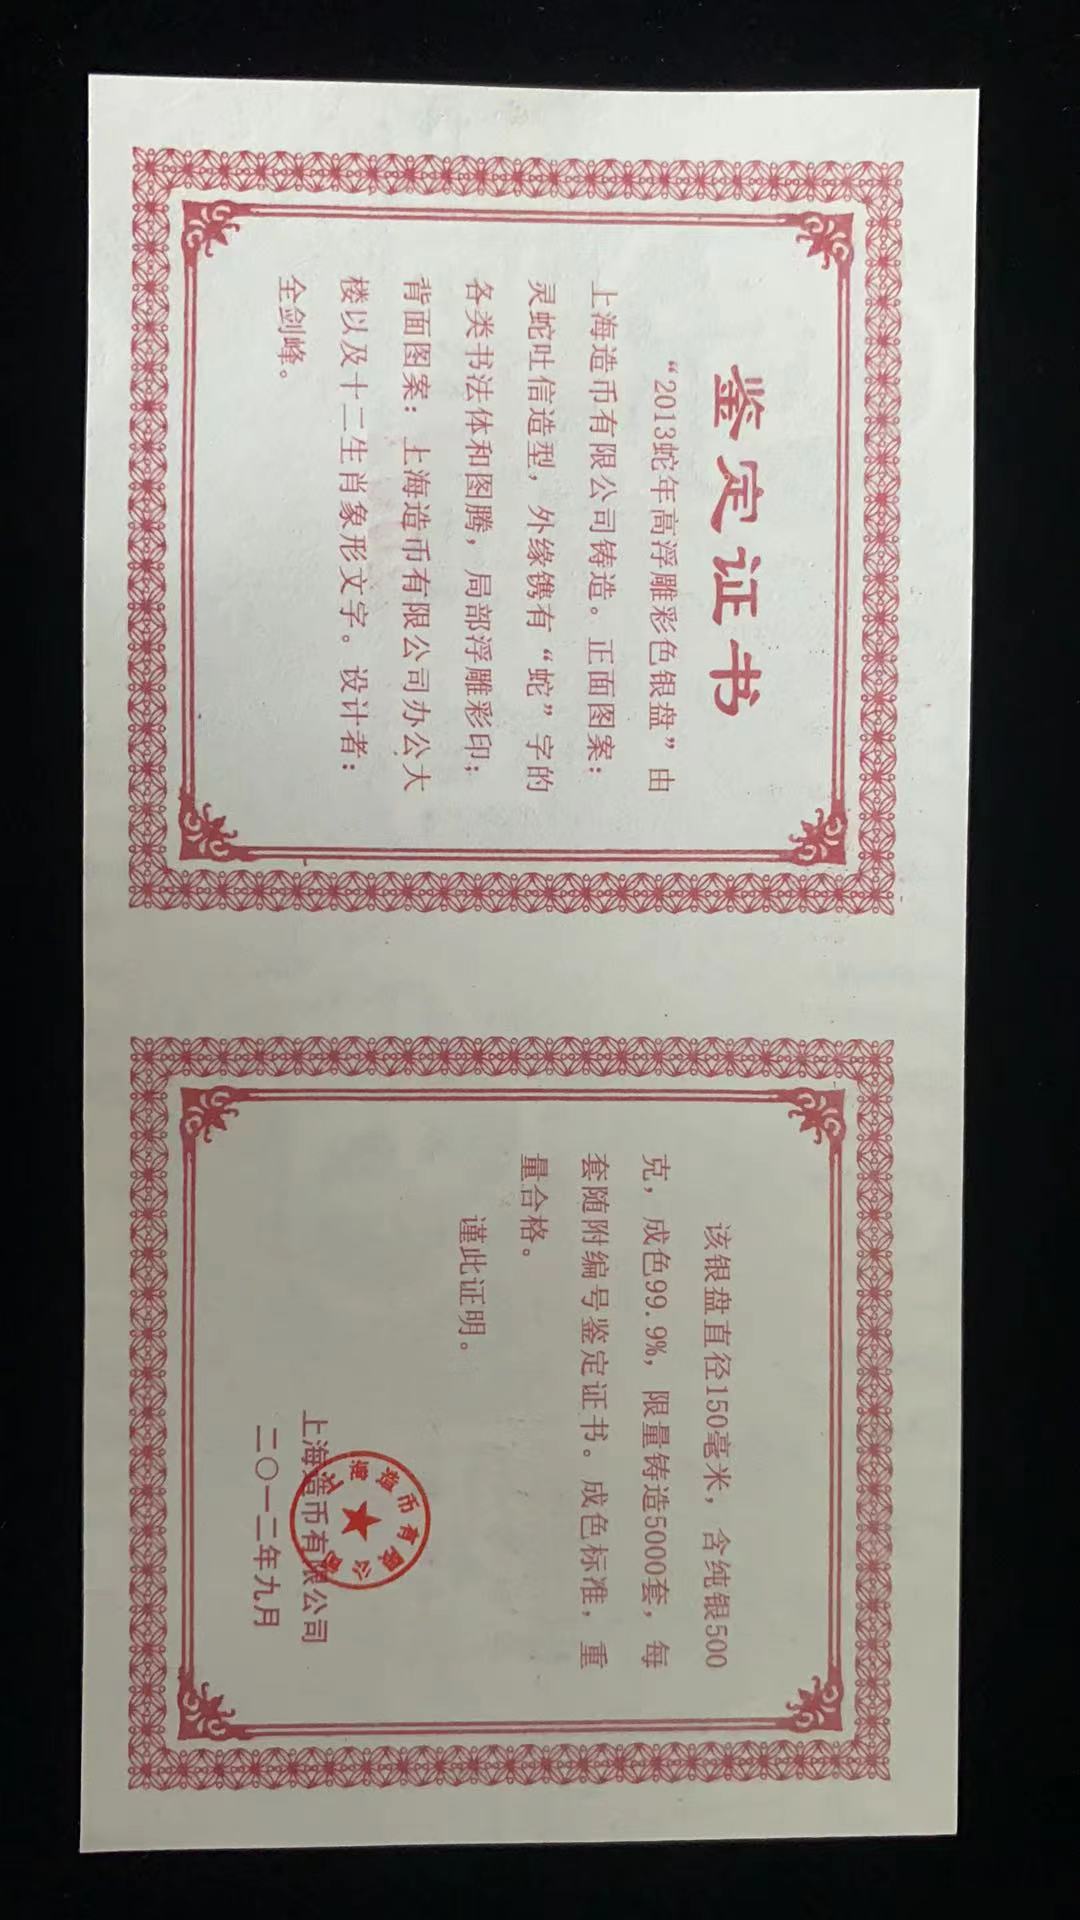 鉴定证书
“2013蛇年高浮雕彩色银盘”由
上海造币有限公司铸造。正面图案：
灵蛇吐信造型，外缘镌有“蛇”字的
各类书法体和图腾，局部浮雕彩印；
背面图案：上海造币有限公司办公大
楼以及十二生肖象形文字。设计者：
全剑峰。
该银盘直径150毫米，含纯银500
克，成色99.9%，限量铸造5000套，每
套随附编号鉴定证书。成色标准，重
量合格。
谨此证明。
上海造币有限公司
二〇一二年九月
上海造币有限公司